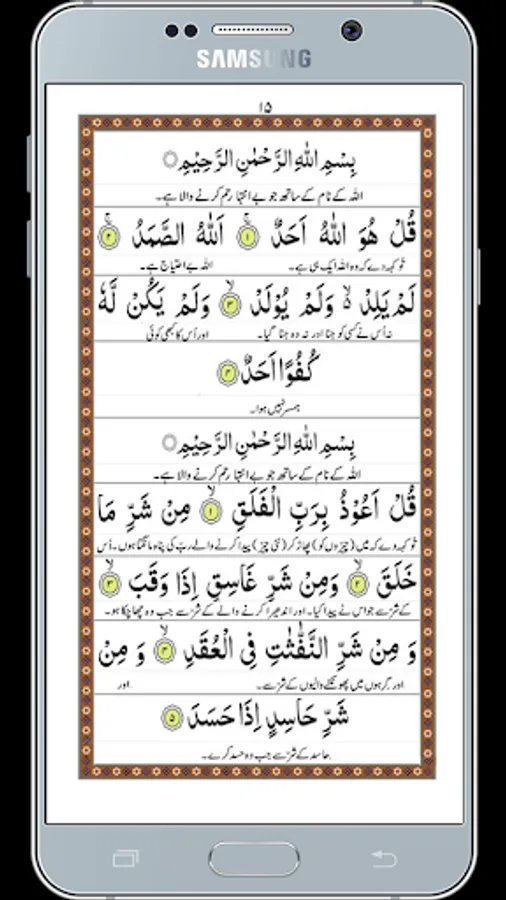 SAMSUNG
۱۵
بِسْمِ اللّٰهِ الرَّحْمٰنِ الرَّحِیْمِ
اللہ کے نام کے ساتھ جو بے انتہا رحم کرنے والا ہے۔
قُلْ هُوَ اللّٰهُ اَحَدٌ ۱ اَللّٰهُ الصَّمَدُ ۲
تو کہہ دے کہ وہ اللہ ایک ہی ہے۔ اللہ بے احتیاج ہے۔
لَمْ یَلِدْ ۙ۬ وَلَمْ یُوْلَدْ ۙ ۳ وَلَمْ یَكُنْ لَّهٗ
نہ اُس نے کسی کو جنا اور نہ وہ جنا گیا۔ اور اُس کا کبھی کوئی
كُفُوًا اَحَدٌ ۴
ہمسر نہیں ہوا۔
بِسْمِ اللّٰهِ الرَّحْمٰنِ الرَّحِیْمِ
اللہ کے نام کے ساتھ جو بے انتہا رحم کرنے والا ہے۔
قُلْ اَعُوْذُ بِرَبِّ الْفَلَقِ ۙ ۱ مِنْ شَرِّ مَا
تو کہہ دے کہ میں (چیزوں کو) پھاڑ کر (نئی چیز) پیدا کرنے والے ربّ کی پناہ مانگتا ہوں۔ اُس
خَلَقَ ۙ ۲ وَمِنْ شَرِّ غَاسِقٍ اِذَا وَقَبَ ۙ ۳
کے شر سے جو اس نے پیدا کیا۔ اور اندھیرا کرنے والے کے شر سے جب وہ چھا چکا ہو۔
وَ مِنْ شَرِّ النَّفّٰثٰتِ فِی الْعُقَدِ ۙ ۴ وَ مِنْ
اور گرہوں میں پھونکنے والیوں کے شر سے۔ اور
شَرِّ حَاسِدٍ اِذَا حَسَدَ ۵
حاسد کے شر سے جب وہ حسد کرے۔